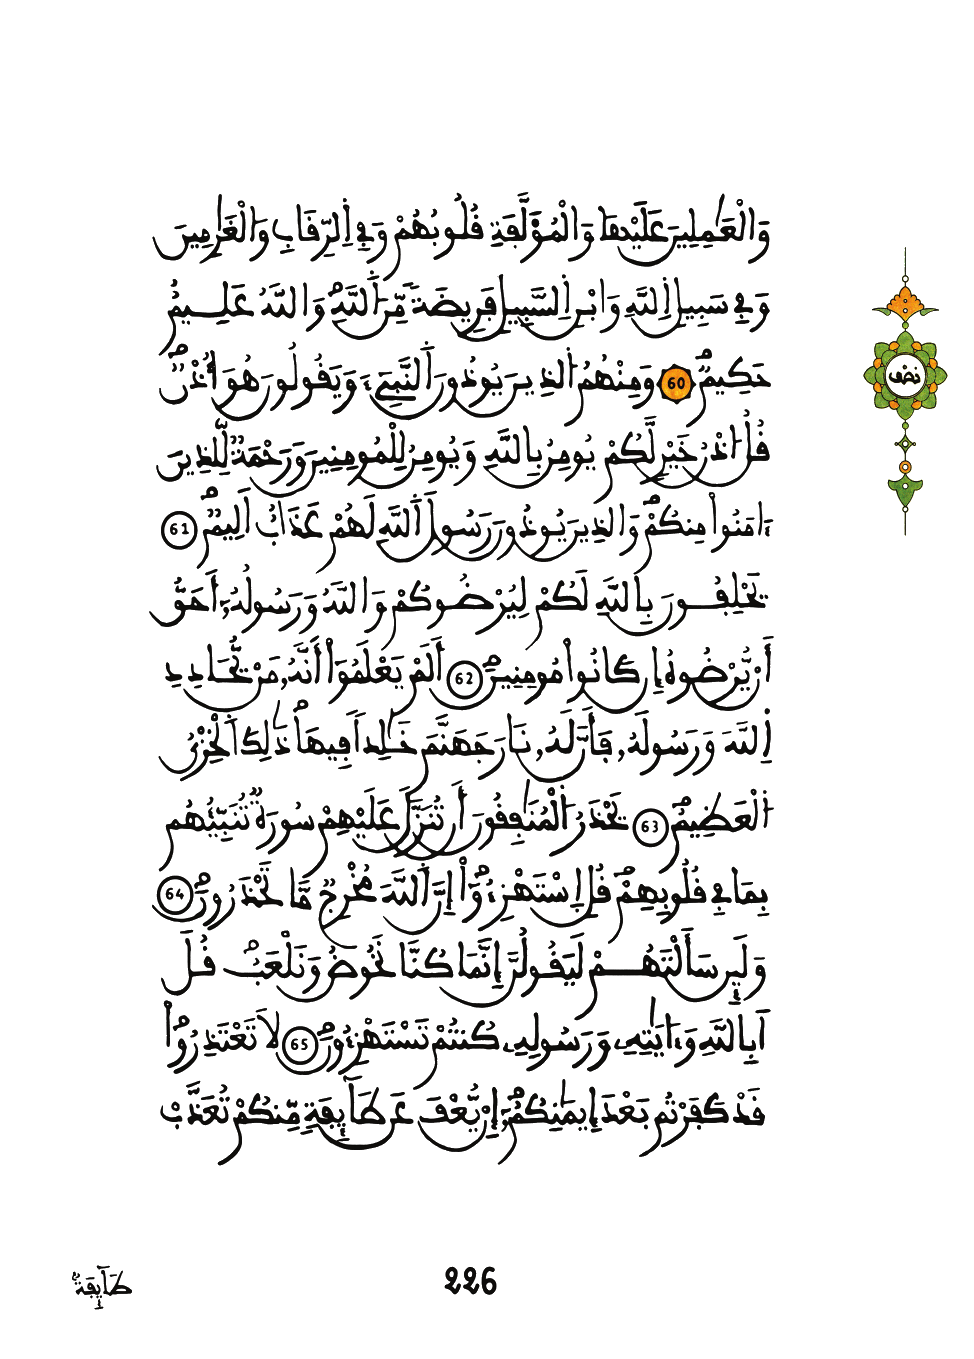 وَالْعَٰمِلِينَ عَلَيْهَا وَالْمُؤَلَّفَةِ قُلُوبُهُمْ وَفِي اِ۬لرِّقَابِ وَالْغَٰرِمِينَ
وَفِي سَبِيلِ اِ۬للَّهِ وَابْنِ اِ۬لسَّبِيلِ فَرِيضَةٗ مِّنَ اَ۬للَّهِۖ وَاللَّهُ عَلِيمٌ
حَكِيمٞۖ 60 وَمِنْهُمُ اُ۬لذِينَ يُوذُونَ اَ۬لنَّبِيٓءَ وَيَقُولُونَ هُوَ أُذُنٞۖ
قُلُ ا۟ذْنُ خَيْرٖ لَّكُمْ يُومِنُ بِاللَّهِ وَيُومِنُ لِلْمُومِنِينَ وَرَحْمَةٞ لِّلذِينَ
ءَامَنُواْ مِنكُمْۖ وَالذِينَ يُوذُونَ رَسُولَ اَ۬للَّهِ لَهُمْ عَذَابٌ اَلِيمٞۖ 61
يَحْلِفُونَ بِاللَّهِ لَكُمْ لِيُرْضُوكُمْ وَاللَّهُ وَرَسُولُهُۥٓ أَحَقُّ
أَنْ يُّرْضُوهُ إِن كَانُواْ مُومِنِينَۖ 62 أَلَمْ يَعْلَمُوٓاْ أَنَّهُۥ مَنْ يُّحَادِدِ
اِ۬للَّهَ وَرَسُولَهُۥ فَأَنَّ لَهُۥ نَارَ جَهَنَّمَ خَٰلِداٗ فِيهَاۖ ذَٰلِكَ اَ۬لْخِزْيُ
اُ۬لْعَظِيمُۖ 63 يَحْذَرُ اُ۬لْمُنَٰفِقُونَ أَن تُنَزَّلَ عَلَيْهِمْ سُورَةٞ تُنَبِّئُهُم
بِمَا فِي قُلُوبِهِمْۖ قُلِ اِ۪سْتَهْزِءُوٓاْۖ إِنَّ اَ۬للَّهَ مُخْرِجٞ مَّا تَحْذَرُونَۖ 64
وَلَئِن سَأَلْتَهُمْ لَيَقُولُنَّ إِنَّمَا كُنَّا نَخُوضُ وَنَلْعَبُۖ قُلَ
اَبِاللَّهِ وَءَايَٰتِهِۦ وَرَسُولِهِۦ كُنتُمْ تَسْتَهْزِءُونَۖ 65 لَا تَعْتَذِرُواْۖ
قَدْ كَفَرْتُم بَعْدَ إِيمَٰنِكُمْۖ إِنْ يُّعْفَ عَن طَآئِفَةٖ مِّنكُمْ تُعَذَّبْ
نصف
طَآئِفَةُۢ
226